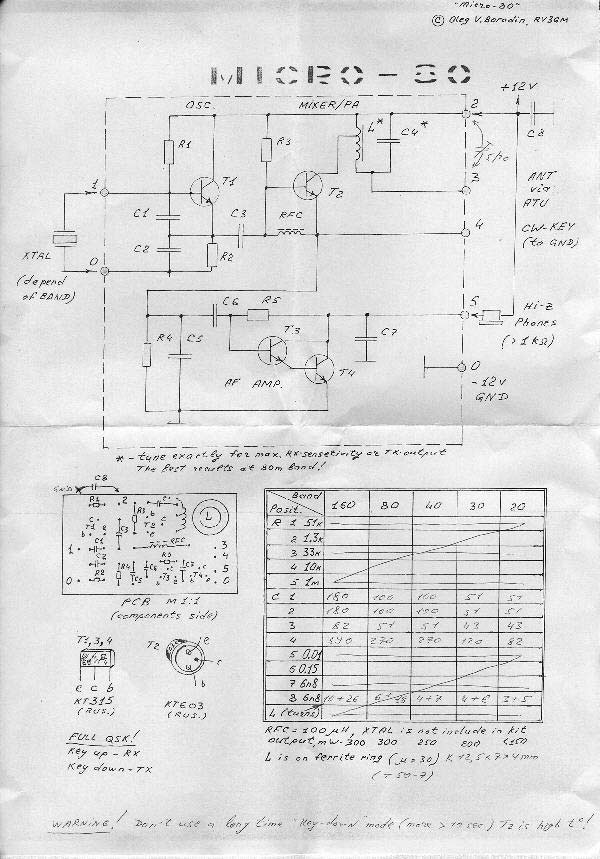 "Micro-80"
© Oleg V. Borodin, RV3GM
MICRO-80
+12V
OSC.
MIXER/PA
2
C8
R1
R3
L*
C4*
T1
T2
3
ANT
via
ATU
1
C1
C3
RFC
4
CW-KEY
(to GND)
C2
R2
XTAL
(depend
of BAND)
0
C6
R5
5
Hi-Z
Phones
(>1kΩ)
R4
C5
T3
C7
T4
AF AMP.
0
-12V
GND
* - tune exactly for max. RX-sensetivity or TX-output
The best results at 80m band!
GND
C8
R1
2
L
R3
T1
T2
C3
1
C1
RFC
3
C2
R5
4
R2
R4
C5
C6
T3
T4
5
0
0
PCB M1:1
(components side)
T1,3,4
e c b
KT315
(RUS.)
T2
e
c
b
KT603
(RUS.)
Band
Posit.
160 80 40 30 20
R 1 51k
2 1.3k
3 33k
4 10k
5 1m
C 1 180 100 100 51 51
2 180 100 100 51 51
3 82 51 51 43 43
4 270 270 120 82
5 0.01
6 0.15
7 6n8
8 6n8
L (turns) 4+7 4+6 3+5
RFC = 100μH, XTAL is not include in kit
output, mW-300 300 250 200 <150
L is on ferrite ring (μ=30) K 12,5x7x4mm
(T50-7)
FULL QSK!
Key up - RX
Key down - TX
WARNING! Don't use a long time "Key-down" mode (more >10 sec) T2 is high t°!